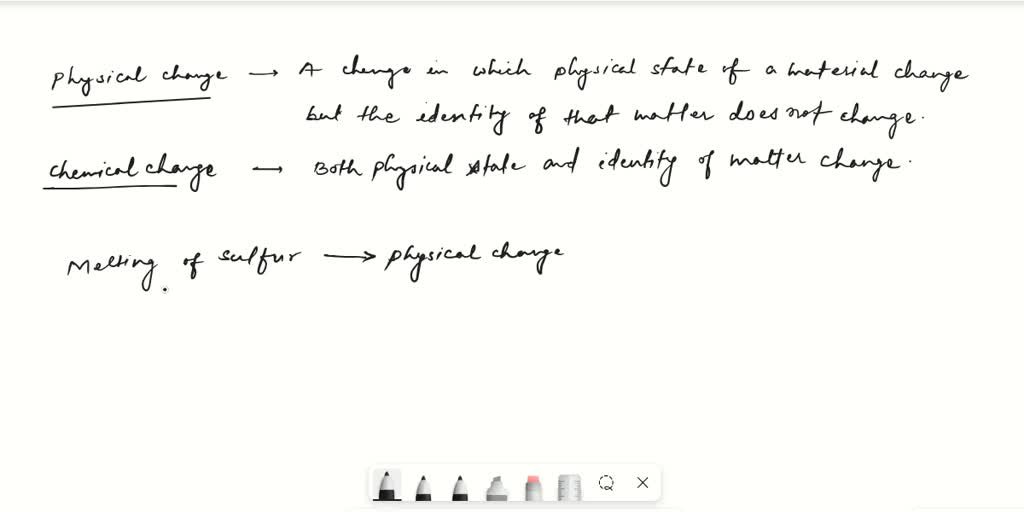 Physical change → A change in which physical state of a material change
but the identity of that matter does not change.
Chemical change → Both physical state and identity of matter change.
Melting of sulfur → physical change